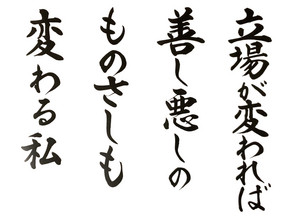 立場が変われば
善し悪しの
ものさしも
変わる私